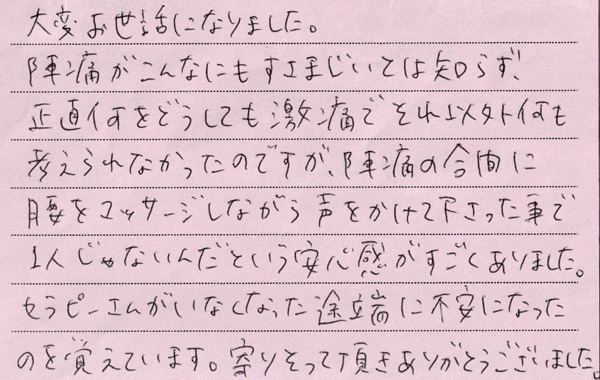 大変お世話になりました。
陣痛がこんなにもすさまじいとは知らず、
正直何をどうしても激痛でそれ以外何も
考えられなかったのですが、陣痛の合間に
腰をマッサージしながら声をかけて下さった事で
1人じゃないんだという安心感がすごくありました。
セラピーさんがいなくなった途端に不安になった
のを覚えています。寄りそって頂きありがとうございました。